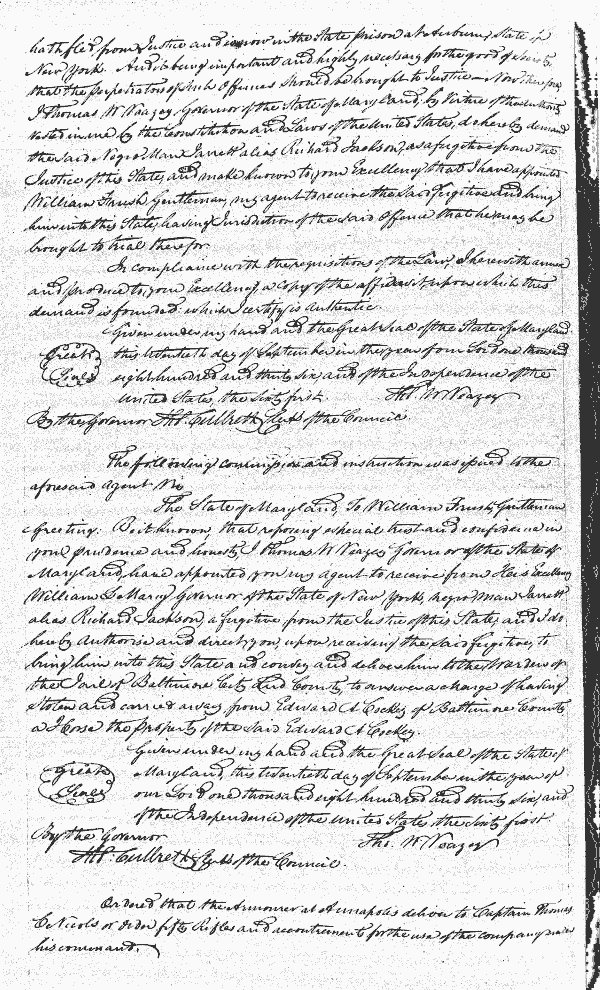 hath fled from Justice and is now in the State prison at Auburn, State of
New York. And it being important and highly necessary for the good of society
that the perpetrators of such Offences should be brought to Justice — Now therefore,
I Thomas W Veazey Governor of the State of Maryland, by Virtue of the authority
vested in me by the Constitution and Laws of the United States, do hereby demand
the said Negro Man Jarrett alias Richard Jackson, as a fugitive from the
Justice of this State, and make known to your Excellency that I have appointed
William Frush Gentleman, my agent to receive the said fugitive and bring
him into this State, having Jurisdiction of the said Offence that he may be
brought to trial therefor.
In compliance with the requisitions of the Law, I herewith annex
and produce to your Excellency, a Copy of the affidavit upon which this
demand is founded which I certify is authentic.
Given under my hand and the Great Seal of the State of Maryland
Great
Seal
this twentieth day of September in the year of our Lord one thousand
eight hundred and thirty six, and of the Independence of the
United States, the Sixty first.
Tho. W Veazey
By the Governor Tho. Culbreth Clerk of the Council
The following commission and instruction was issued to the
aforesaid agent Viz
The State of Maryland, To William Frush, Gentleman
Greeting. Be it known that reposing especial trust and confidence in
your prudence and honesty I Thomas W Veazey Governor of the State of
Maryland, have appointed you my agent to receive from His Excellency
William L Marcy Governor of the State of New York, negro man Jarrett
alias Richard Jackson, a fugitive from the Justice of this State, and I do
hereby Authorise and direct you, upon receiving the said fugitive, to
bring him into this State and convey and deliver him to the Warden of
the Jail of Baltimore City and County, to answer a charge of having
Stolen and carried away from Edward A Cockey of Baltimore County
a Horse the property of the said Edward A Cockey.
Given under my hand and the Great Seal of the State of
Great
Seal
Maryland, this twentieth day of September in the year of
our Lord one thousand eight hundred and thirty six, and
of the Independence of the United States the Sixty first.
By the Governor
Tho. W Veazey
Tho. Culbreth Clk of the Council.
Ordered that the Armourer at Annapolis deliver to Captain Thomas
C Nicols or order fifty Rifles and accoutrements for the use of the company under
his command.